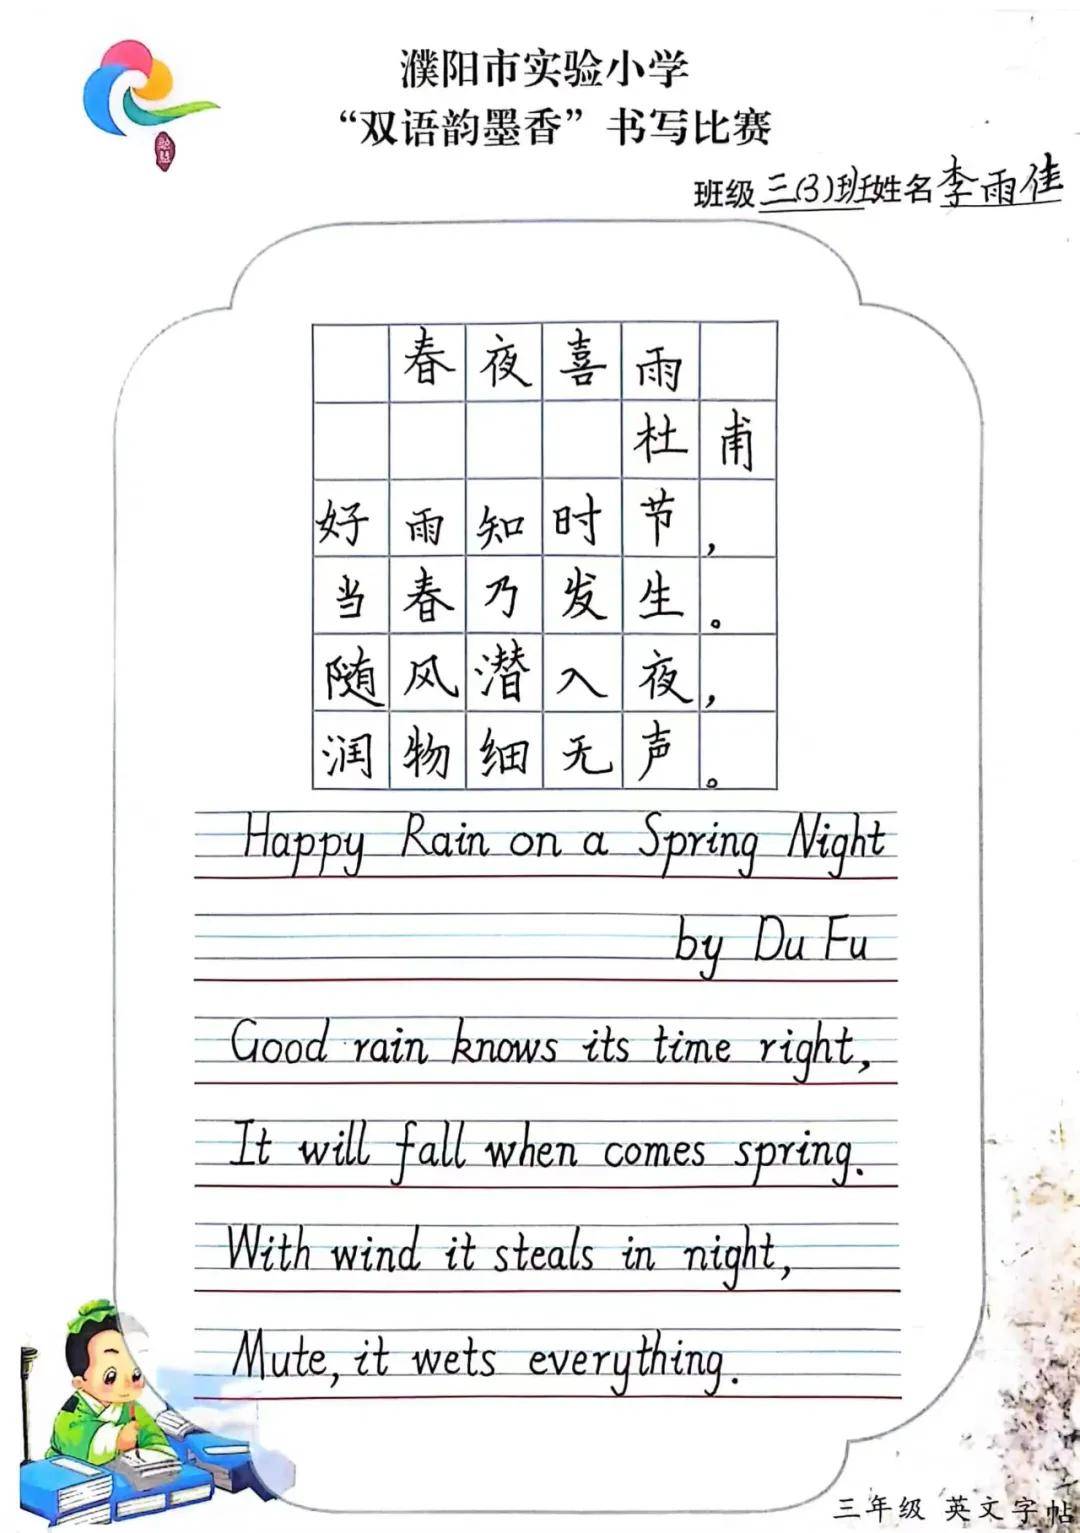 濮阳市实验小学
“双语韵墨香”书写比赛
班级 三(3)班 姓名 李雨佳
春夜喜雨
杜甫
好雨知时节，
当春乃发生。
随风潜入夜，
润物细无声。
Happy Rain on a Spring Night
by Du Fu
Good rain knows its time right,
It will fall when comes spring.
With wind it steals in night,
Mute, it wets everything.
三年级 英文字帖